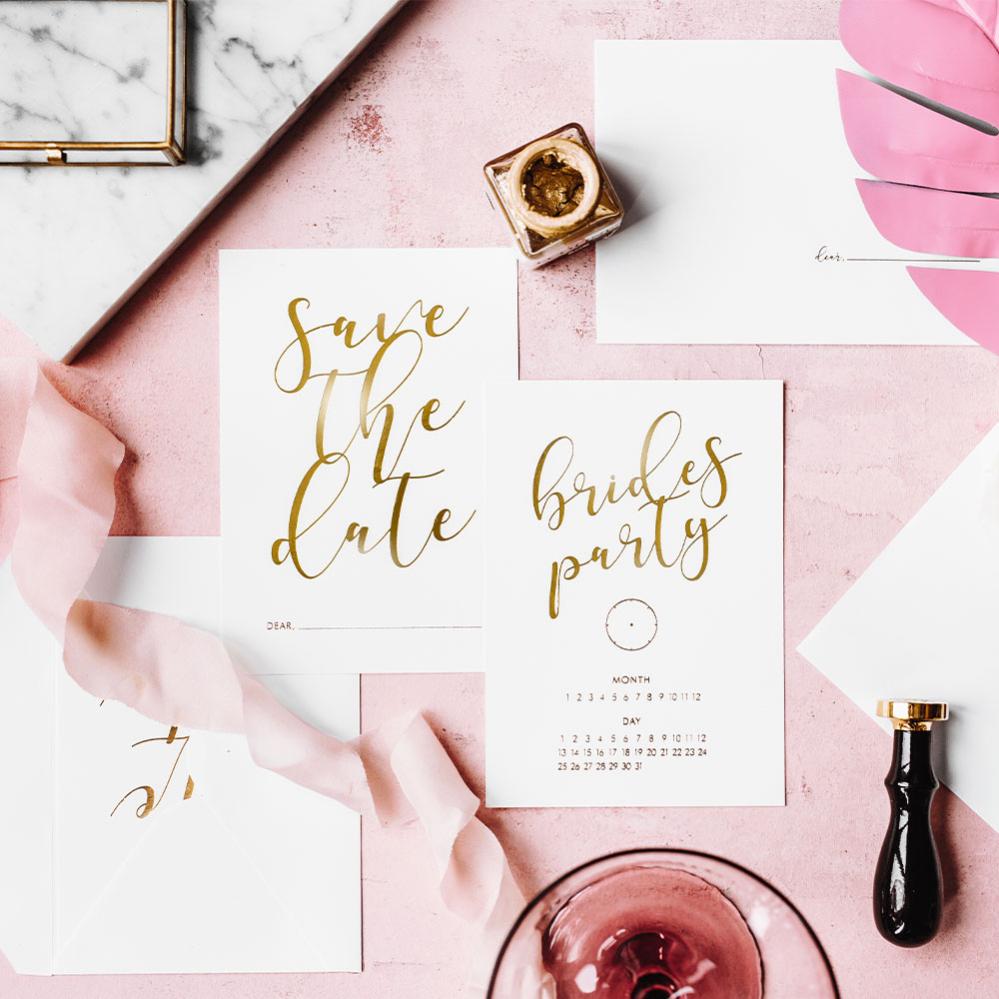 dear,
save
the
date
DEAR,
brides
party
MONTH
1 2 3 4 5 6 7 8 9 10 11 12
DAY
1 2 3 4 5 6 7 8 9 10 11 12
13 14 15 16 17 18 19 20 21 22 23 24
25 26 27 28 29 30 31